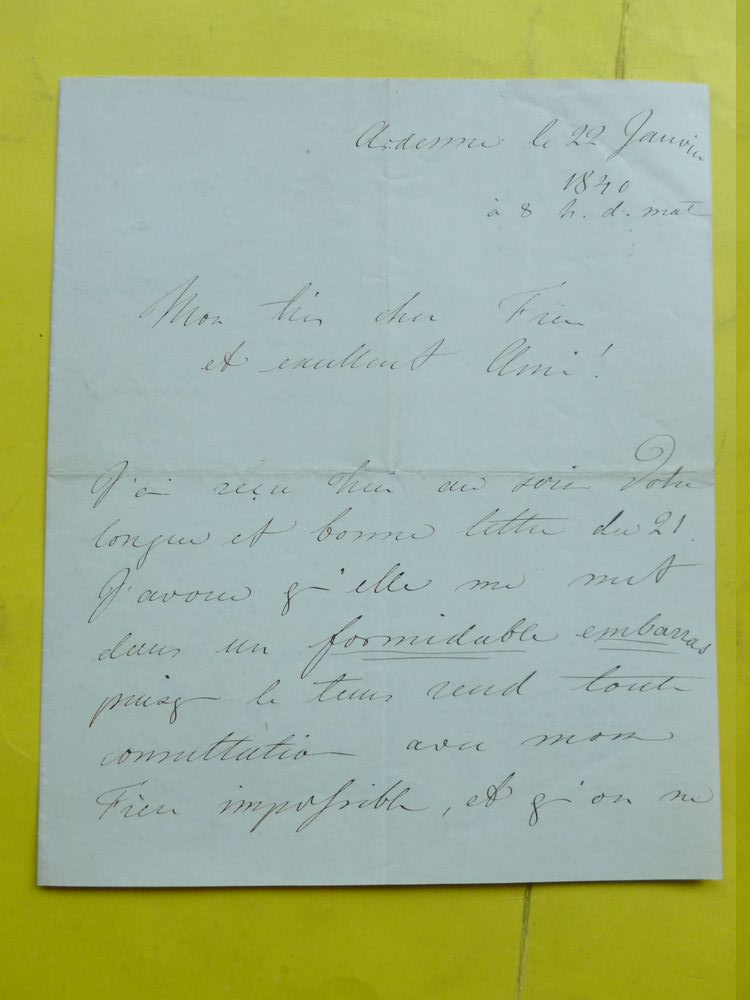 Ardenne le 22 Janvier
1840
à 8 h. d. mat
Mon très cher Frère
et excellent Ami!
J'ai reçu hier au soir Votre
longue et bonne lettre du 21.
J'avoue q'elle me met
dans un formidable embarras
puisq le tems rend toute
consultation avec mon
Frère impossible, et q'on ne